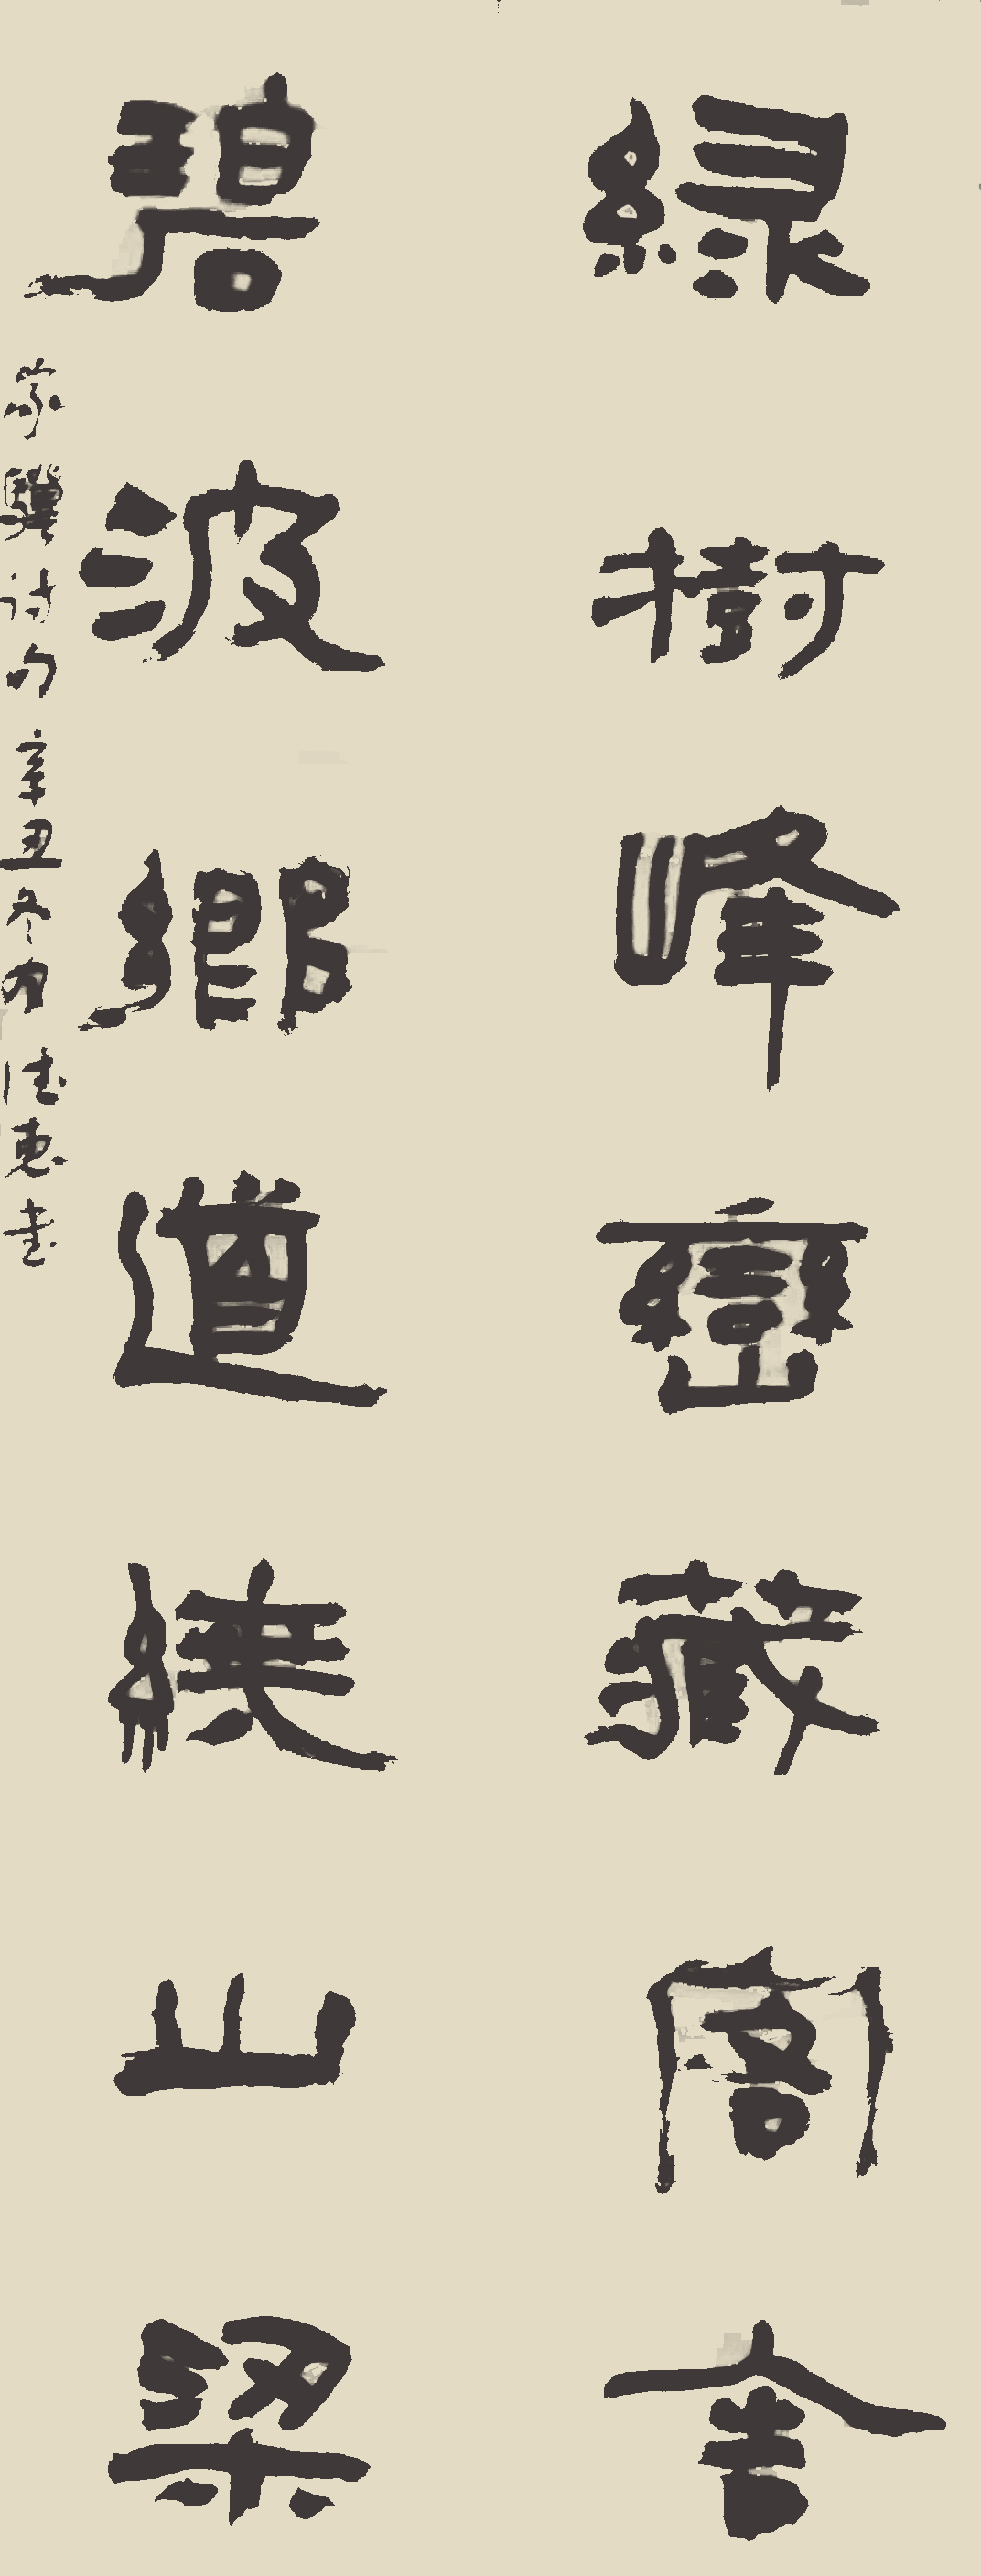 綠樹峰巒藏閣舍
碧波鄉道繞山梁
家驥詩句辛丑冬月德惠書